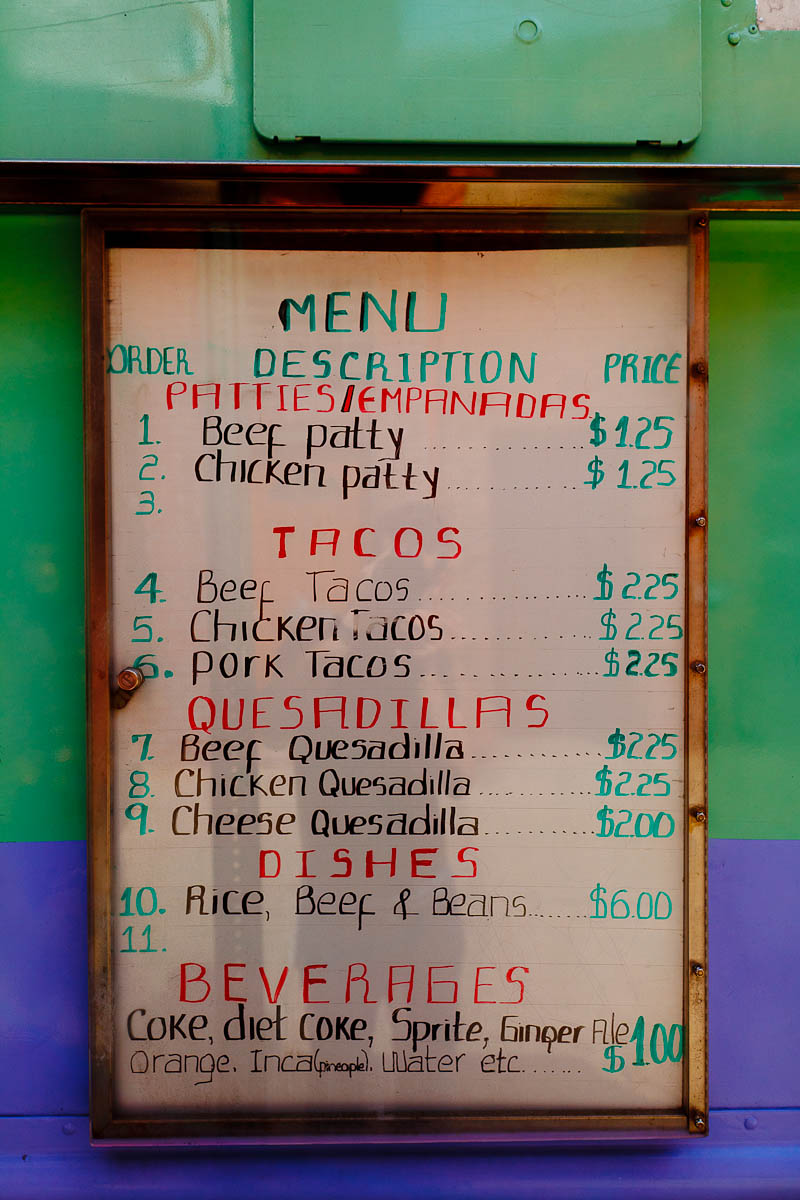 MENU
ORDER DESCRIPTION PRICE
PATTIES/EMPANADAS
1. Beef patty ............... $1.25
2. Chicken patty ............ $1.25
3.
TACOS
4. Beef Tacos ................ $2.25
5. Chicken Tacos ............. $2.25
6. Pork Tacos ................ $2.25
QUESADILLAS
7. Beef Quesadilla ............ $2.25
8. Chicken Quesadilla .......... $2.25
9. Cheese Quesadilla .......... $2.00
DISHES
10. Rice, Beef & Beans ....... $6.00
11.
BEVERAGES
Coke, diet Coke, Sprite, Ginger Ale
Orange. Inca (pineaple). Water etc....... $1.00